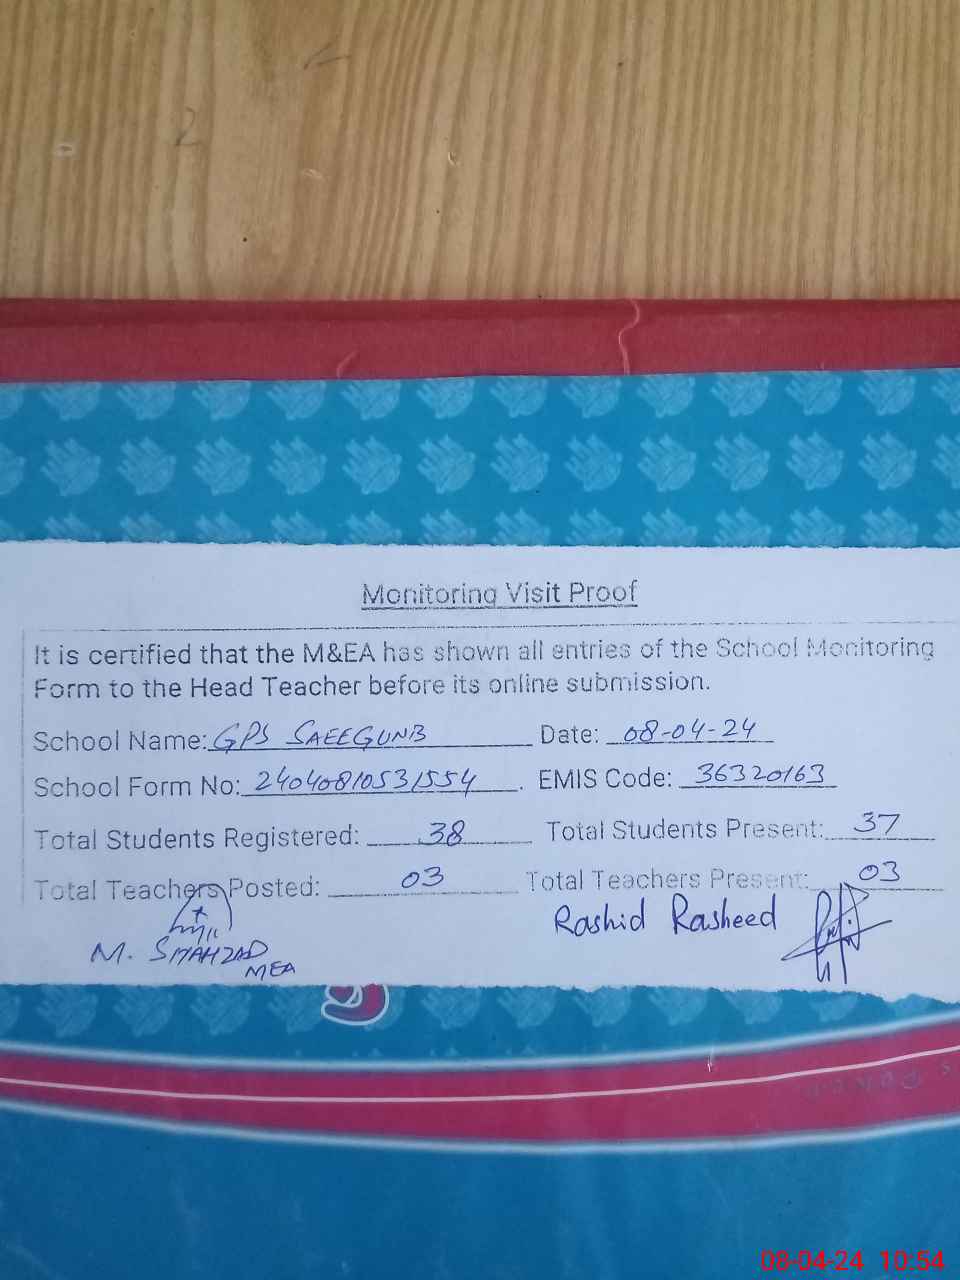 Monitoring Visit Proof
It is certified that the M&EA has shown all entries of the School Monitoring
Form to the Head Teacher before its online submission.
School Name: GPS SAEEGUNB Date: 08-04-24
School Form No: 24040810531554. EMIS Code: 36320163
Total Students Registered: 38 Total Students Present: 37
Total Teachers Posted: 03 Total Teachers Present: 03
Rashid Rasheed
M. SHAHZAD
MEA
08-04-24 10:54